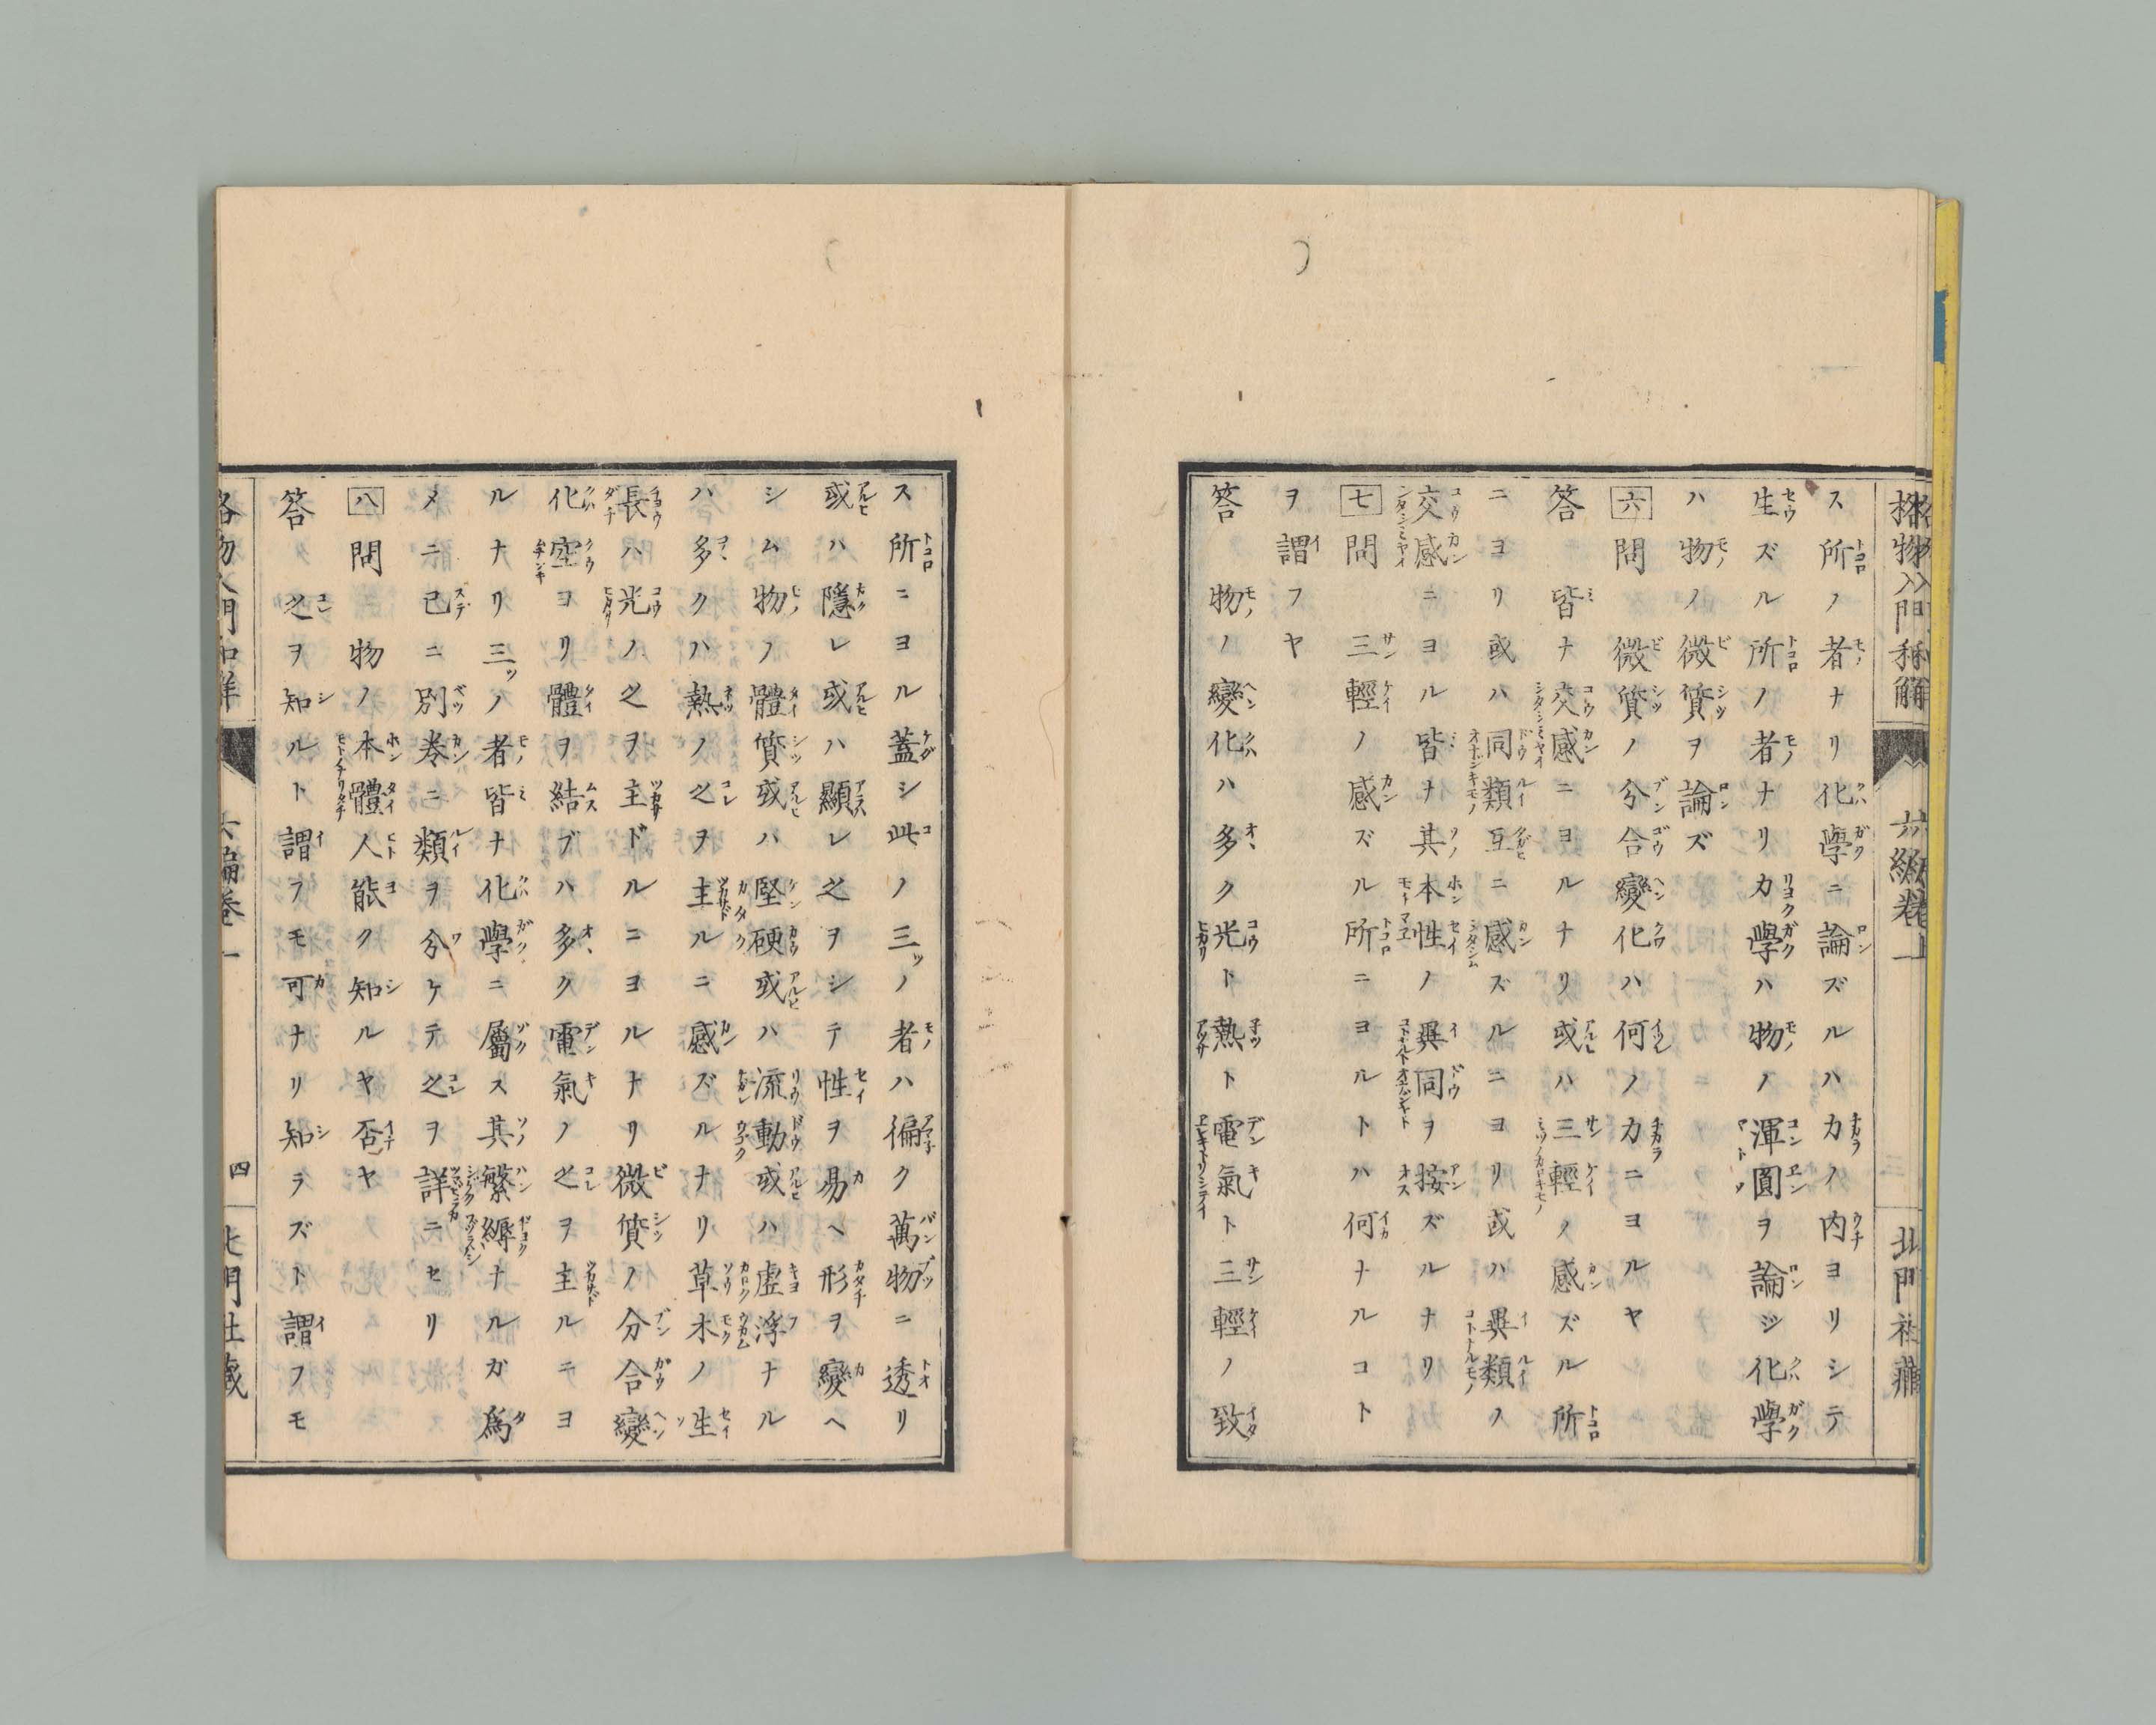 格物入門和解 六編卷一 北門社藏
ス所ノ者ナリ化學ニ論ズルハカノ内ヨリシテ
生ズル所ノ者ナリカ學ハ物ノ渾圓ヲ論ジ化學
ハ物ノ微質ヲ論ズ
六問 微質ノ分合變化ハ何ノカニヨルヤ
答 皆ナ交感ニヨルナリ或ハ三輕ノ感ズル所
ニヨリ或ハ同類互ニ感ズルニヨリ或ハ異類ノ
交感ニヨル皆ナ其本性ノ異同ヲ按ズルナリ
七問 三輕ノ感ズル所ニヨルトハ何ナルコト
ヲ謂フヤ
答 物ノ變化ハ多ク光ト熱ト電氣ト三輕ノ致
ス所ニヨル蓋シ此ノ三ッノ者ハ徧ク萬物ニ透リ
或ハ隱レ或ハ顯レ之ヲシテ性ヲ易ヘ形ヲ變ヘ
シム物ノ體質或ハ堅硬或ハ流動或ハ虛浮ナル
ハ多クハ熱ノ之ヲ主ルニ感ズルナリ草木ノ生
長ハ光ノ之ヲ主ドルニヨルナリ微質ノ分合變
化空ヨリ體ヲ結ブハ多ク電氣ノ之ヲ主ルニヨ
ルナリ三ッノ者皆ナ化學ニ屬ス其繁縟ナルガ爲
メニ已ニ別卷ニ類ヲ分ケテ之ヲ詳ニセリ
八問 物ノ本體人能ク知ルヤ否ヤ
答 之ヲ知ルト謂フモ可ナリ知ラズト謂フモ
格物入門和解 六編卷一 四 北門社藏